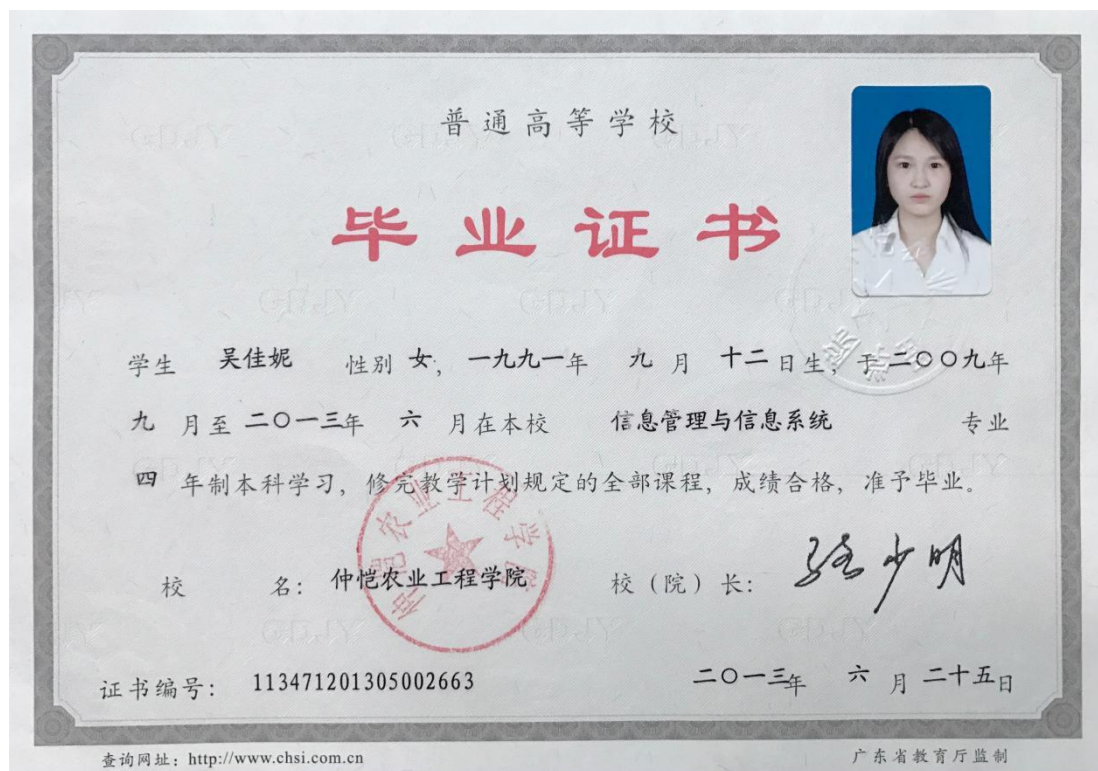 普通高等学校
毕业证书
学生 吴佳妮 性别 女, 一九九一年 九 月 十二 日生, 于二〇〇九年
九 月至 二〇一三年 六 月在本校 信息管理与信息系统 专业
四 年制本科学习, 修完教学计划规定的全部课程, 成绩合格, 准予毕业。
仲恺农业工程学院
校 名: 仲恺农业工程学院 校(院)长: 骆少明
证书编号: 113471201305002663 二〇一三年 六 月 二十五日
查询网址: http://www.chsi.com.cn 广东省教育厅监制